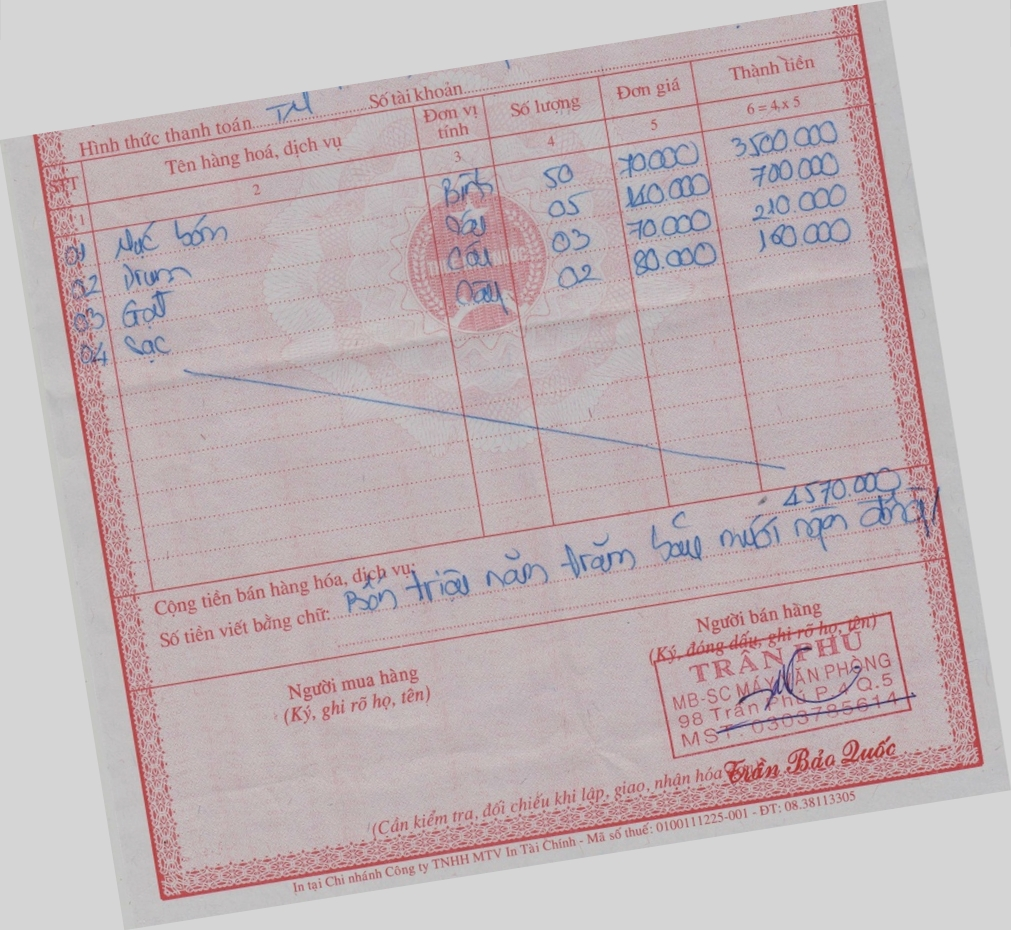 Hình thức thanh toán TM Số tài khoản
STT Tên hàng hoá, dịch vụ Đơn vị tính Số lượng Đơn giá Thành tiền
1 2 3 4 5 6 = 4 x 5
01 Mực bơm Bình 50 70.000 3500.000
02 Drum Cái 05 140.000 700.000
03 Gạt Cái 03 70.000 210.000
04 Sạc Cây 02 80.000 160.000
Cộng tiền bán hàng hóa, dịch vụ: 4570.000
Số tiền viết bằng chữ: Bốn triệu năm trăm bảy mươi ngàn đồng
Người mua hàng
(Ký, ghi rõ họ, tên)
Người bán hàng
(Ký, đóng dấu, ghi rõ họ, tên)
TRÂN PHÚ
MB-SC MÁY VĂN PHÒNG
98 Trần Phú P.4 Q.5
MST: 0303785614
Trần Bảo Quốc
(Cần kiểm tra, đối chiếu khi lập, giao, nhận hóa
In tại Chi nhánh Công ty TNHH MTV In Tài Chính - Mã số thuế: 0100111225-001 - ĐT: 08.38113305